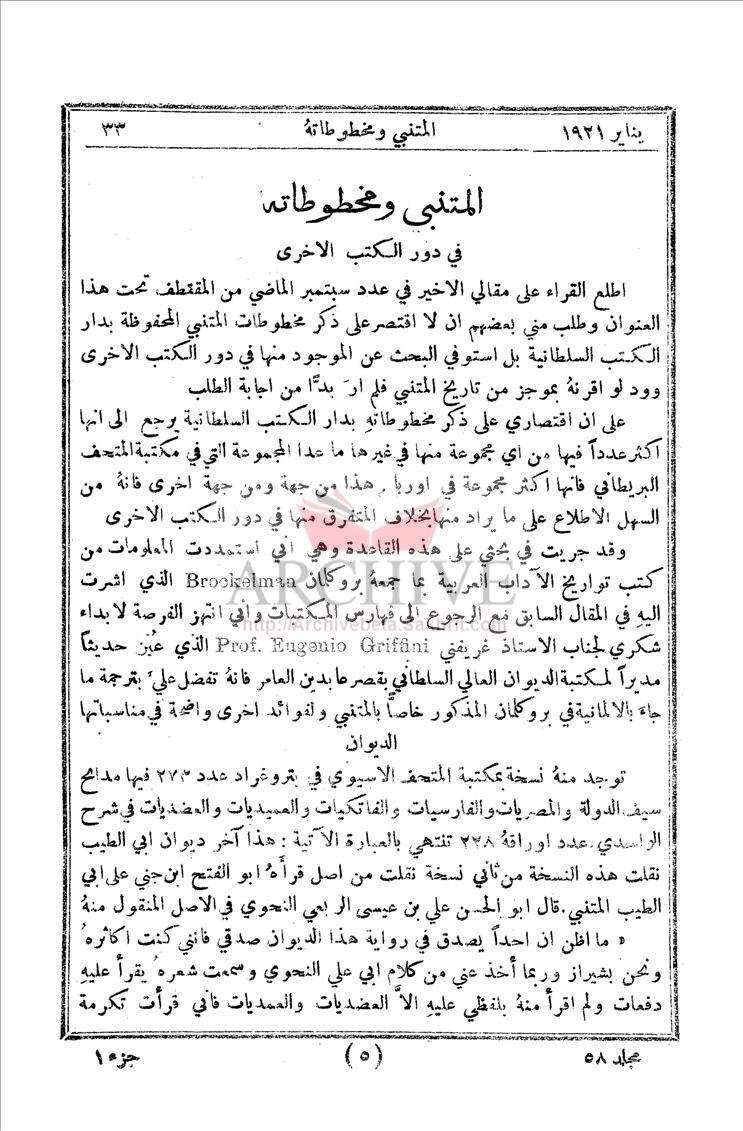 يناير ١٩٢١ المتنبي ومخطوطاتهُ ٣٣
المتنبي ومخطوطاته
في دور الكتب الاخرى
اطلع القراء على مقالي الاخير في عدد سبتمبر الماضي من المقتطف تحت هذا
العنوان وطلب مني بعضهم ان لا اقتصر على ذكر مخطوطات المتنبي المحفوظة بدار
الكتب السلطانية بل استوفي البحث عن الموجود منها في دور الكتب الاخرى
وود لو اقرنهُ بموجز من تاريخ المتنبي فلم ارَ بدًّا من اجابة الطلب
على ان اقتصاري على ذكر مخطوطاتهِ بدار الكتب السلطانية يرجع الى انها
اكثر عدداً فيها من اي مجموعة منها في غيرها ما عدا المجموعة التي في مكتبة المتحف
البريطاني فانها اكثر مجموعة في اوربا . هذا من جهة ومن جهة اخرى فانهُ من
السهل الاطلاع على ما يراد منها بخلاف المتفرق منها في دور الكتب الاخرى
وقد جريت في بحثي على هذه القاعدة وهي اني استمددت المعلومات من
كتب تواريخ الآداب العربية بما جمعهُ بروكلمان Brockelman الذي اشرت
اليهِ في المقال السابق مع الرجوع الى فهارس المكتبات واني انتهز الفرصة لابداء
شكري لجناب الاستاذ غريفني Prof. Eugenio Griffini الذي عُيّن حديثاً
مديراً لمكتبة الديوان العالي السلطاني بقصر عابدين العامر فانهُ تفضل عليَّ بترجمة ما
جاءَ بالالمانية في بروكلمان المذكور خاصاً بالمتنبي ولفوائد اخرى واضحة في مناسباتها
الديوان
توجد منهُ نسخة بمكتبة المتحف الاسيوي في بتروغراد عدد ٢٧٣ فيها مدايح
سيف الدولة والمصريات والفارسيات والفاتكيات والعميديات والعضديات في شرح
الواحدي . عدد اوراقهُ ٢٢٨ تنتهي بالعبارة الآتية : هذا آخر ديوان ابي الطيب
نقلت هذه النسخة من ثاني نسخة نقلت من اصل قرأهُ ابو الفتح ابن جني على ابي
الطيب المتنبي . قال ابو الحسن علي بن عيسى الربعي النحوي في الاصل المنقول منهُ
« ما اظن ان احداً يصدق في رواية هذا الديوان صدقي فانني كنت اكاثرهُ
ونحن بشيراز وربما أخذ عني من كلام ابي علي النحوي وسمعت شعرهُ يقرأ عليهِ
دفعات ولم اقرأ منهُ بلفظي عليهِ الاَّ العضديات والعمديات فاني قرأت تكرمة
مجلد ٥٨ (٥) جزء ١
ARCHIVE
http://Archivebeta.Sakhrit.com